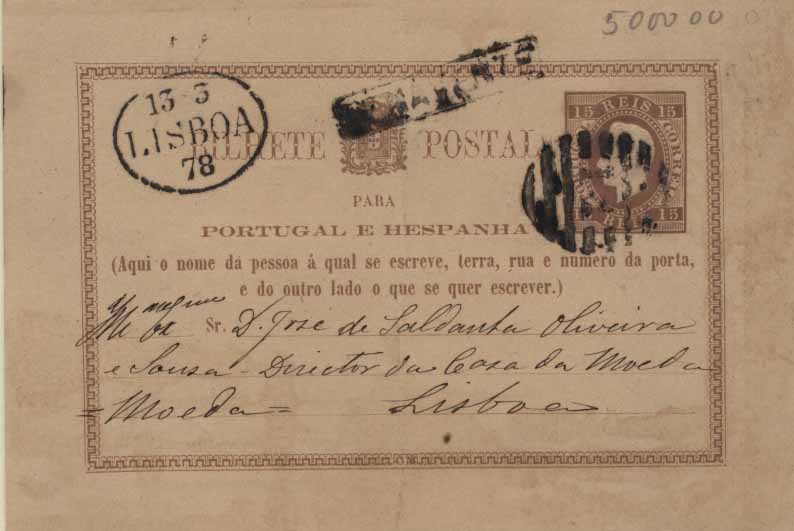 500000
13-3
LISBOA
78
BILHETE POSTAL
15 REIS 15
CORREIO
15 15
PARA
PORTUGAL E HESPANHA
(Aqui o nome da pessoa á qual se escreve, terra, rua e numero da porta,
e do outro lado o que se quer escrever.)
Sr. D. José de Saldanha Oliveira
e Sousa - Director da Casa da Moeda
= Moeda = Lisboa